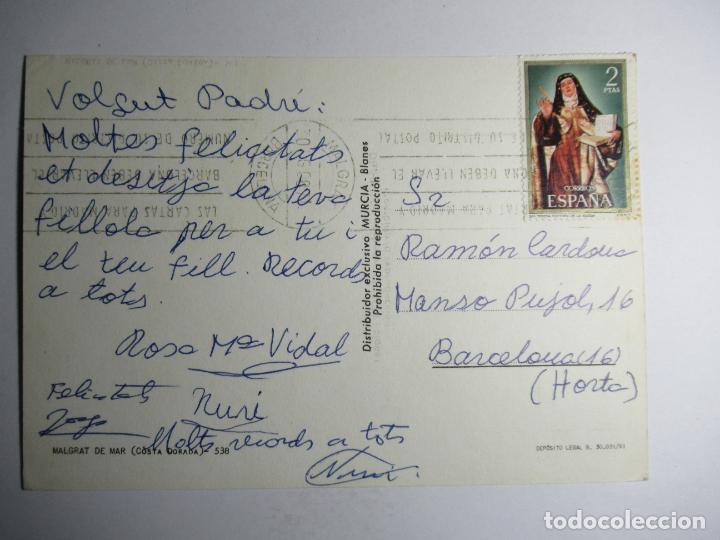 Volgut Padrí:
Moltes felicitats
et desitja la teva
fillola per a tu i
el teu fill. Records
a tots.
Rosa Mª Vidal
Felicitats
Nuri
Molts records a tots
Nuri
MALGRAT DE MAR (COSTA DORADA)- 538
Distribuidor exclusivo MURCIA - Blanes
Prohibida la reproducción
2
PTAS
CORREOS
ESPAÑA
NUMERO DE
SU DISTRITO POSTAL
BARCELONA DEBEN LLEVAR EL
LAS CARTAS PARA MADRID Y
BARCELONA
Sr
Ramón Cardona
Manso Pujol, 16
Barcelona (16)
(Horta)
DEPÓSITO LEGAL B. 30.031/XI
todocoleccion
todocoleccion.net